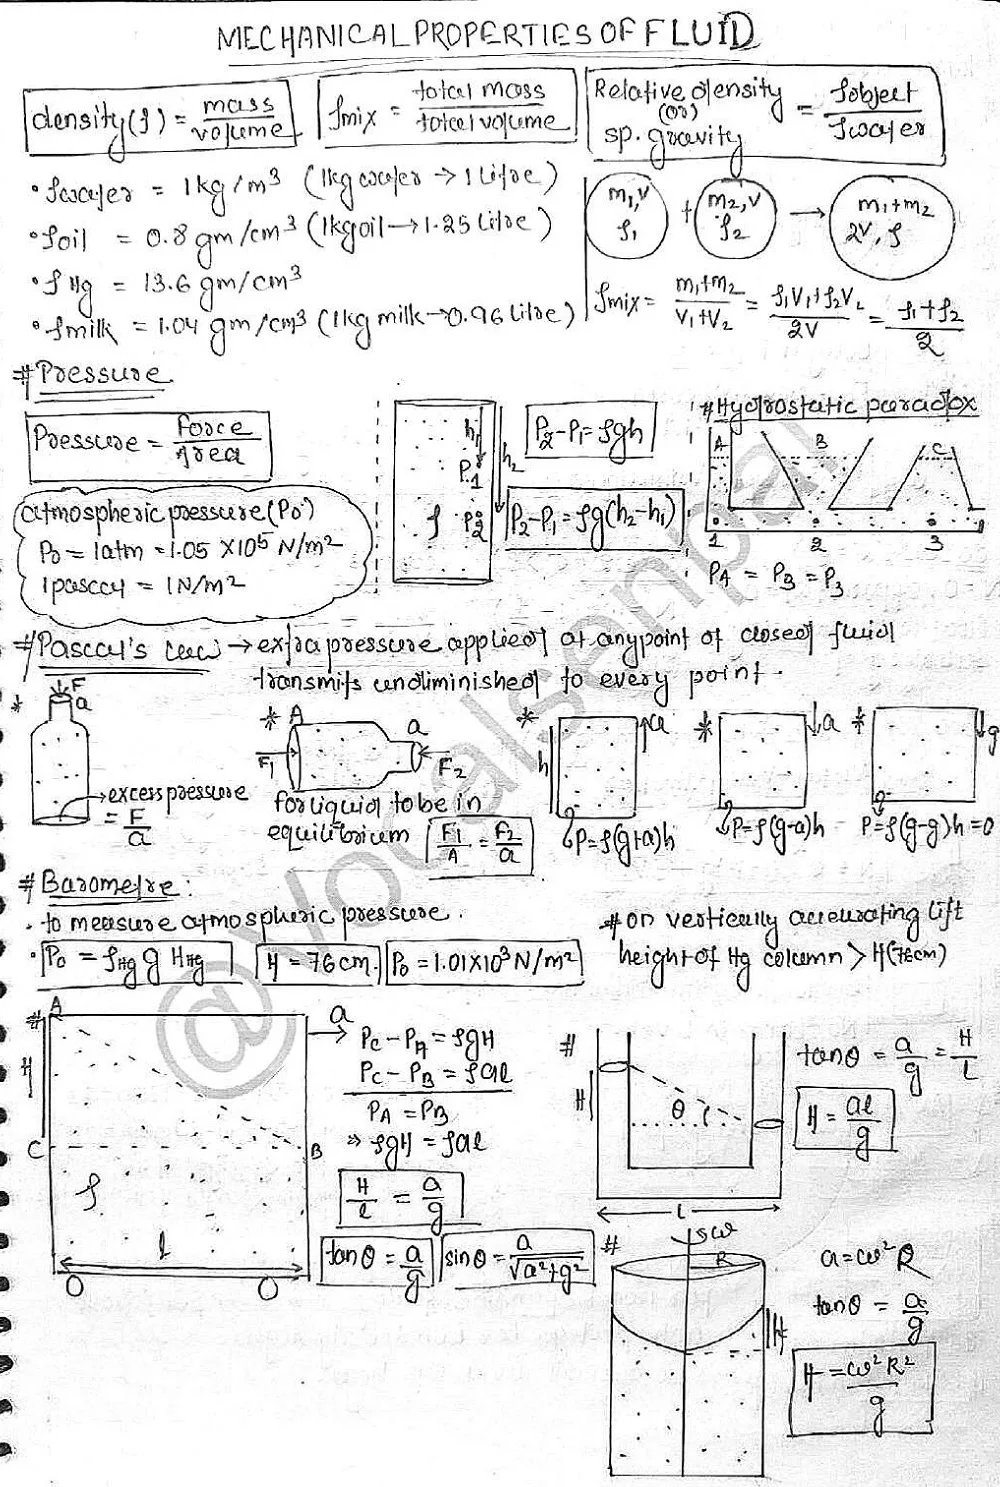 MECHANICAL PROPERTIES OF FLUID
density(ρ) = mass/volume
ρmix = total mass/total volume
Relative density (or) sp. gravity = ρobject/ρwater
• ρwater = 1kg/m³ (1kg water → 1 litre)
• ρoil = 0.8 gm/cm³ (1kg oil → 1.25 litre)
• ρHg = 13.6 gm/cm³
• ρmilk = 1.04 gm/cm³ (1kg milk → 0.96 litre)
m₁,V ρ₁ + m₂,V ρ₂ → m₁+m₂ 2V, ρ
ρmix = m₁+m₂/V₁+V₂ = ρ₁V₁+ρ₂V₂/2V = ρ₁+ρ₂/2
# Pressure
Pressure = Force/Area
atmospheric pressure (P₀)
P₀ = 1atm = 1.05 × 10⁵ N/m²
1 pascal = 1N/m²
h₁ h₂ P₁ P₂ ρ
P₂-P₁ = ρgh
P₂-P₁ = ρg(h₂-h₁)
# Hydrostatic paradox
A B C
1 2 3
PA = PB = P3
# Pascal's law → extra pressure applied at any point of closed fluid
transmits undiminished to every point.
* F a
excess pressure = F/a
* A a F₁ F₂
for liquid to be in
equilibrium F₁/A = F₂/a
* h a P=ρ(g+a)h
* a P=ρ(g-a)h
* g P=ρ(g-g)h=0
# Barometre:
• to measure atmospheric pressure.
• P₀ = ρHg g HHg
H = 76cm.
P₀ = 1.01×10³ N/m²
# on vertically accelerating lift
height of Hg column > H(76cm)
# A a H C B ρ l
PC - PA = ρgH
PC - PB = ρal
PA = PB
⇒ ρgH = ρal
H/l = a/g
tanθ = a/g
sinθ = a/√a²+g²
# H θ l L
tanθ = a/g = H/L
H = al/g
# ω R H
a = ω²R
tanθ = a/g
H = ω²R²/g
@Vocalsenpai